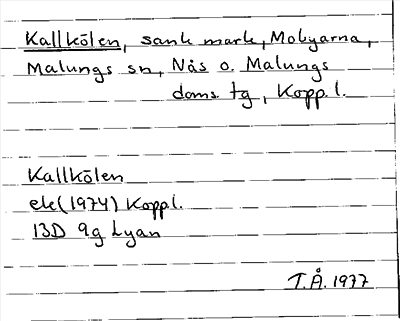 Kallkölen, sank mark, Mobyarna,
Malungs sn, Nås o. Malungs
doms. tg, Kopp. l.
Kallkölen
ek (1974) Koppl.
13D 9g Lyan
T.Å. 1977